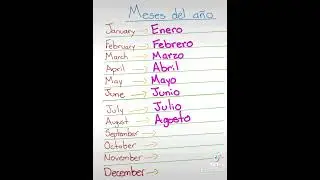 Meses del año
January → Enero
February → Febrero
March → Marzo
April → Abril
May → Mayo
June → Junio
July → Julio
August → Agosto
September →
October →
November →
December →